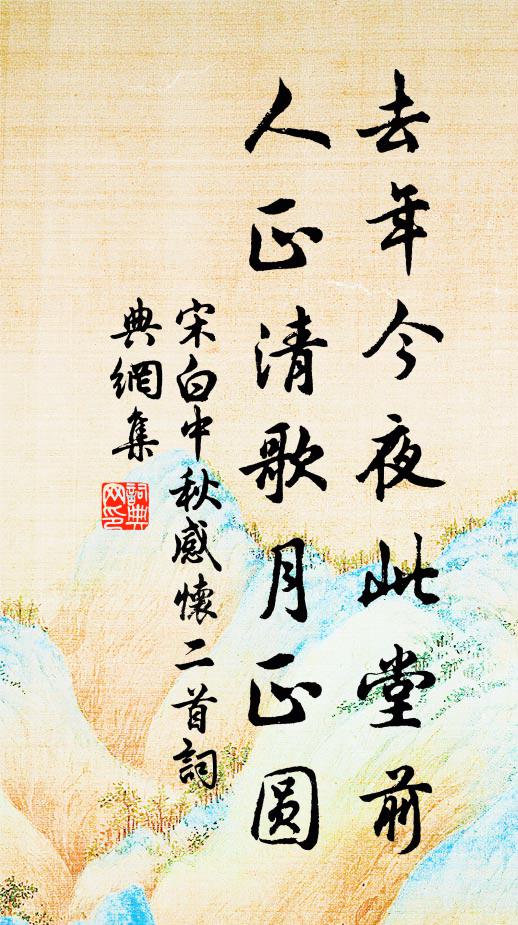 去年今夜此堂前
人正清歌月正圓
宋白中秋感懷二首詞
典網集
詞典網印